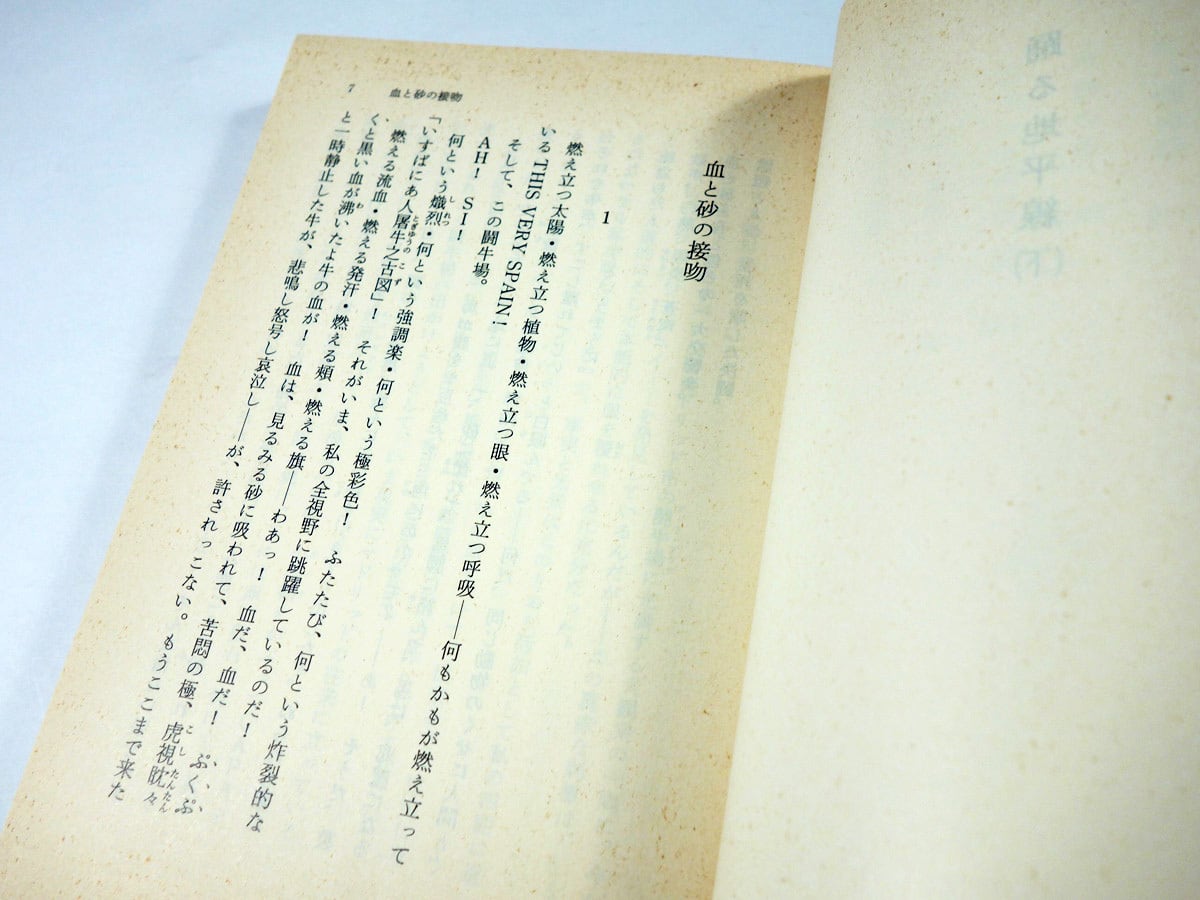 踊る地平線(下)
7 血と砂の接吻
血と砂の接吻
1
燃え立つ太陽・燃え立つ植物・燃え立つ眼・燃え立つ呼吸――何もかもが燃え立って
いるTHIS VERY SPAIN!
そして、この闘牛場。
AH! SI!
何という熾烈・何という強調楽・何という極彩色! ふたたび、何という炸裂的な
「いすぱにあ人屠牛之古図」! それがいま、私の全視野に跳躍しているのだ!
燃える流血・燃える発汗・燃える頬・燃える旗――わあっ! 血だ、血だ! ぷくぷ
くと黒い血が沸いたよ牛の血が! 血は、見るみる砂に吸われて、苦悶の極、虎視眈々
と一時静止した牛が、悲鳴し怒号し哀泣し――が、許されっこない。もうここまで来た